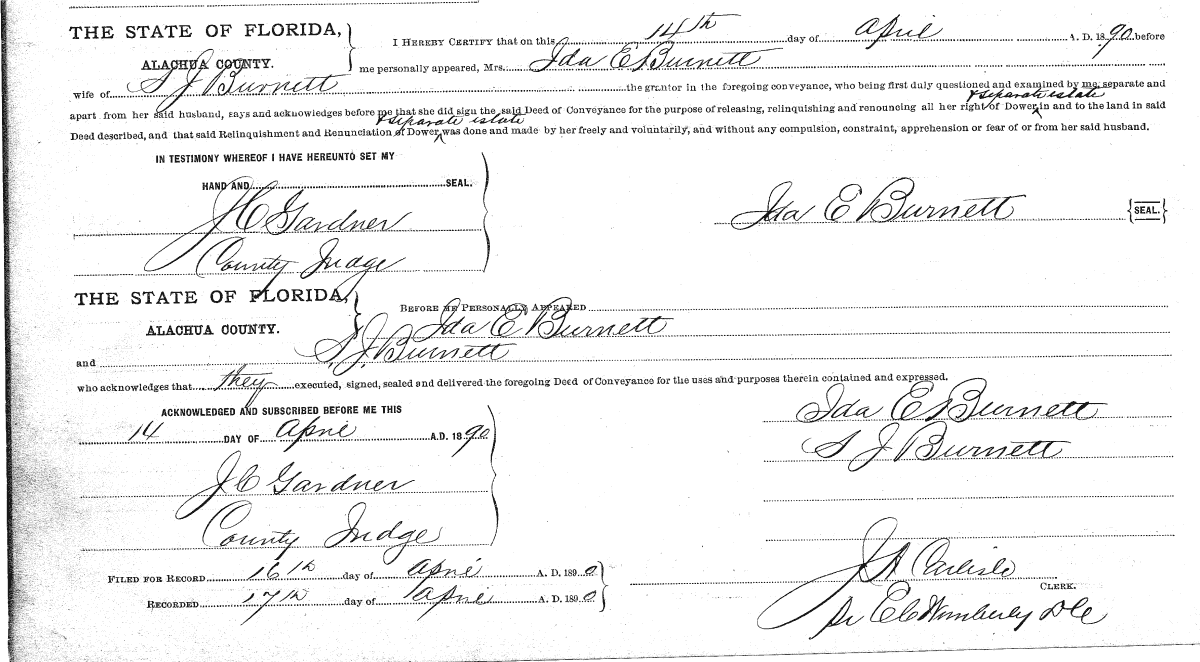 THE STATE OF FLORIDA,
ALACHUA COUNTY.
I HEREBY CERTIFY that on this 14th day of April A. D. 1890 before
me personally appeared, Mrs. Ida E Burnett
wife of S J Burnett the grantor in the foregoing conveyance, who being first duly questioned and examined by me, separate and
& separate estate
apart from her said husband, says and acknowledges before me that she did sign the said Deed of Conveyance for the purpose of releasing, relinquishing and renouncing all her right of Dower ^ in and to the land in said
& separate estate
Deed described, and that said Relinquishment and Renunciation of Dower ^ was done and made by her freely and voluntarily, and without any compulsion, constraint, apprehension or fear of or from her said husband.
IN TESTIMONY WHEREOF I HAVE HEREUNTO SET MY
HAND AND SEAL.
J C Gardner
County Judge
Ida E Burnett {SEAL.}
THE STATE OF FLORIDA,
ALACHUA COUNTY.
BEFORE ME PERSONALLY APPEARED
Ida E Burnett
and S. J. Burnett
who acknowledges that they executed, signed, sealed and delivered the foregoing Deed of Conveyance for the uses and purposes therein contained and expressed.
ACKNOWLEDGED AND SUBSCRIBED BEFORE ME THIS
14 DAY OF April A.D. 1890
J C Gardner
County Judge
Ida E Burnett
S J Burnett
FILED FOR RECORD 16th day of April A. D. 1890
RECORDED 17th day of April A. D. 1890
J A Carlisle
CLERK.
Wimberly D C